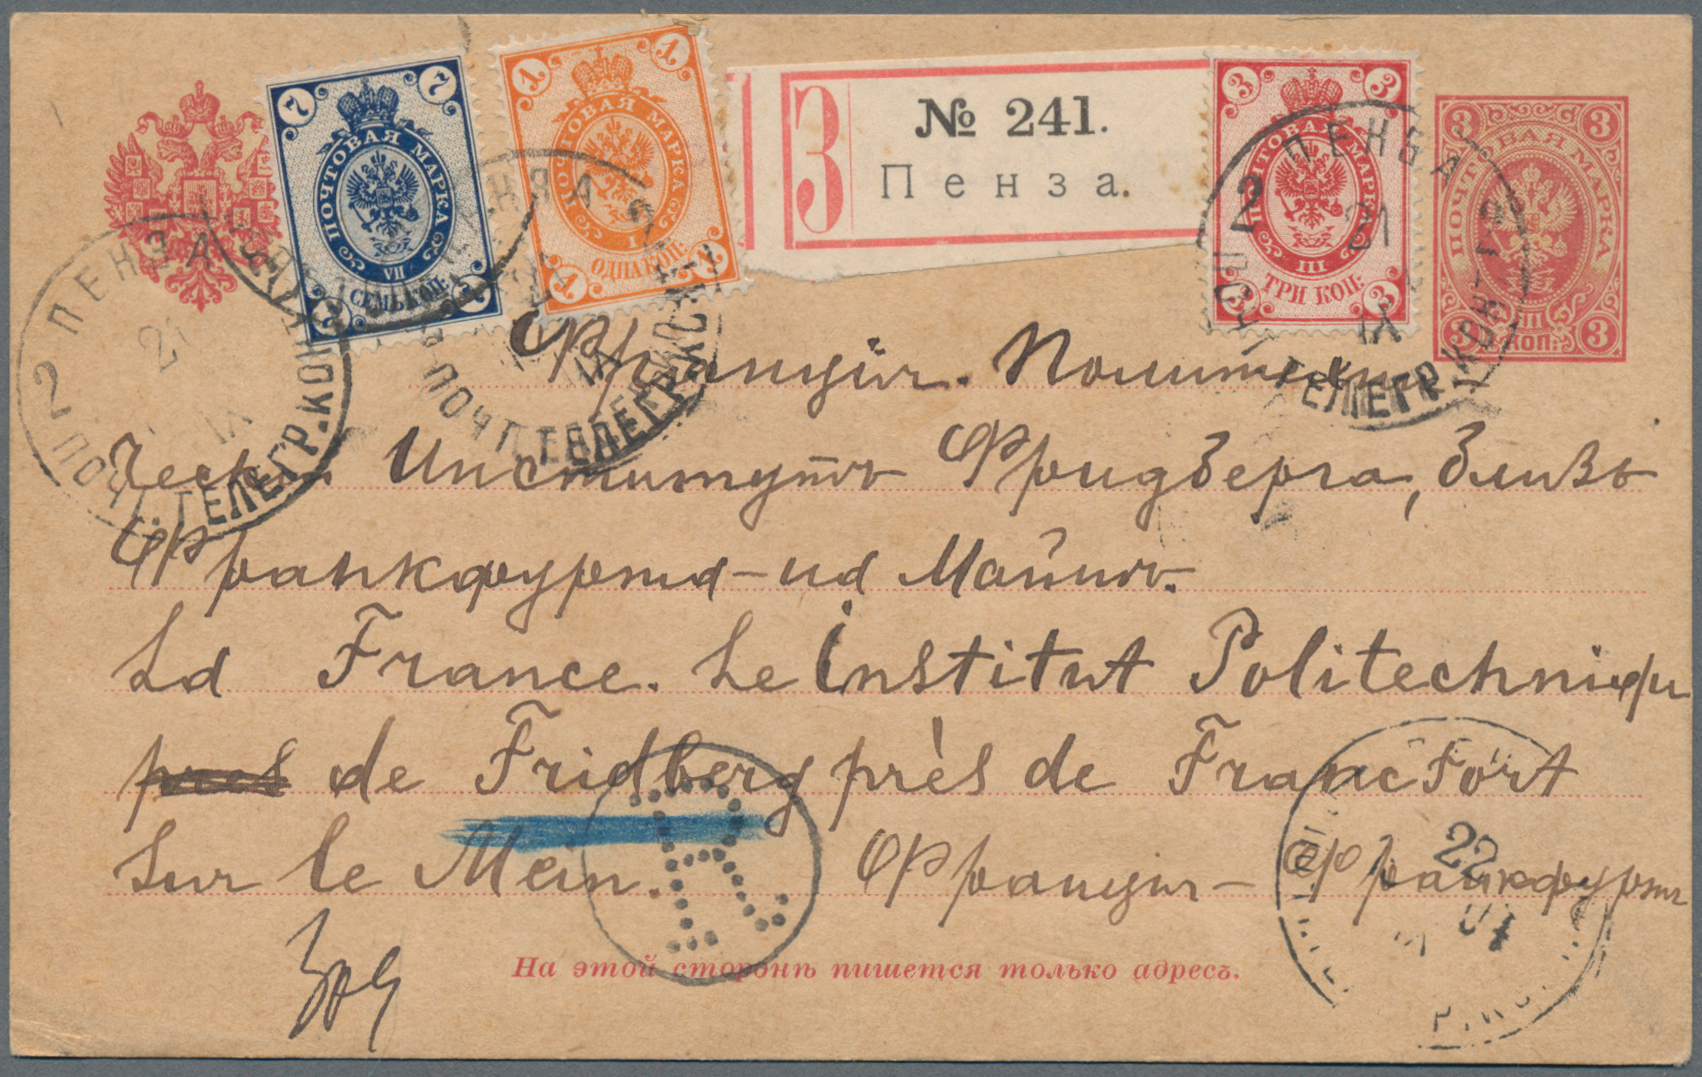 7 7
ПОЧТОВАЯ МАРКА
VII
СЕМЬ КОП.
1 1
ПОЧТОВАЯ МАРКА
I
ОДНА КОП.
З
№ 241.
Пенза.
3 3
ПОЧТОВАЯ МАРКА
III
ТРИ КОП.
3 3
ПОЧТОВАЯ МАРКА
III
3 КОП. 3
2 ПЕНЗА 21 IX ПОЧТ. ТЕЛЕГР. КОН
ПЕНЗА 2 IX ПОЧТ. ТЕЛЕГР. КОН
ПЕНЗА 2 21 IX ТЕЛЕГР. КОН
Франція. Политехни
ческ. Институтъ Фридберга, близь
Франкфурта-на Майнѣ.
La France. Le institut Politechniqu
pres de Fridberg près de Francfort
sur le Mein. Франція - Франкфурт
R
22 IX 04
На этой сторонѣ пишется только адресъ.